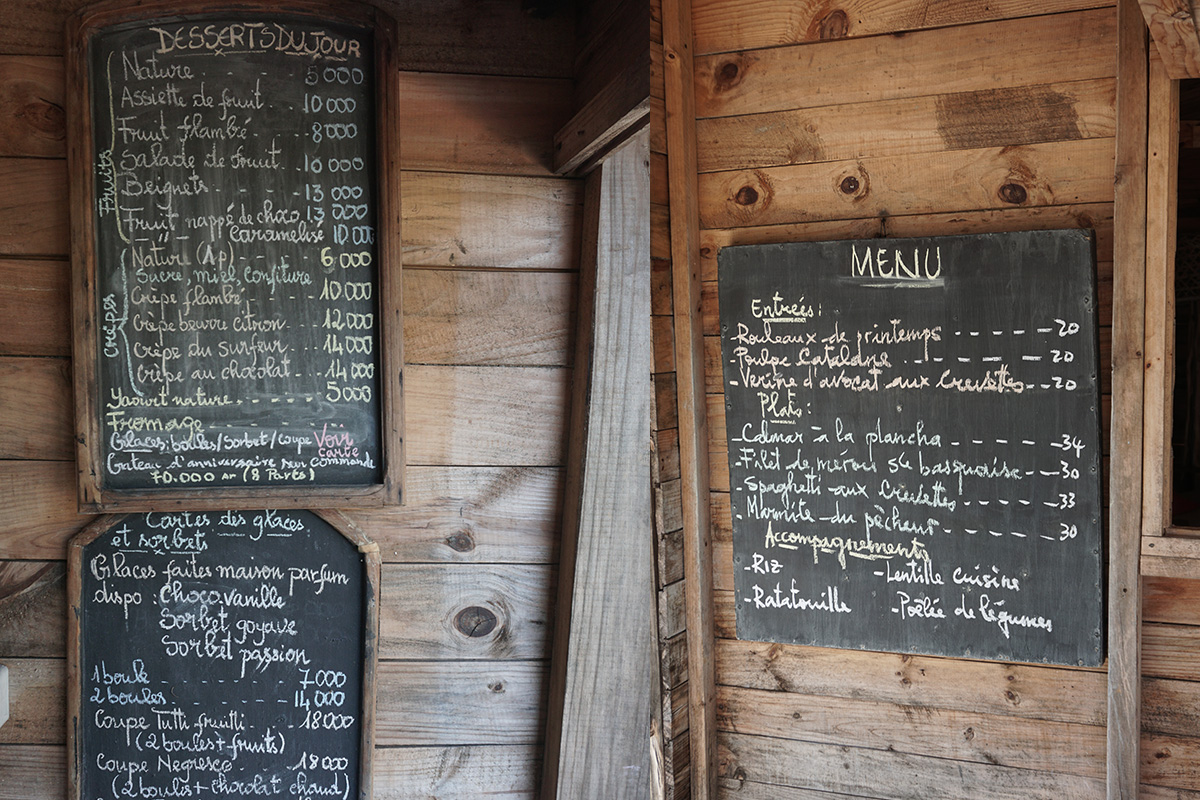 DESSERTS DU JOUR
Fruits
Nature - - - - 5 000
Assiette de fruit . . 10 000
Fruit flambé - . . . 8 000
Salade de fruit . . . 10 000
Beignets . - - - . 13 000
Fruit nappé de choco 13 000
caramelise 10 000
Crepes
Nature (Ap) - - - - 6 000
Sucre, miel, confiture
Crèpe flambé, - - - 10.000
Crèpe beurre citron - - - 12 000
Crèpe du surfeur . - - 14 000
Crèpe au chocolat . - - 14 000
Yaourt nature . - - - - - 5 000
Fromage
Glaces: boules/sorbet/coupe Voir carte
Gateau d'anniversaire sur commande
70.000 ar (8 Parts)
Cartes des glaces
et sorbets
Glaces faites maison parfum
dispo : Choco. vanille
Sorbet goyave
Sorbet passion
1 boule - - - - - - - 7 000
2 boules - - - - - - 14 000
Coupe Tutti fruitti - - - 18 000
(2 boules + fruits)
Coupe Negresco - - - 18 000
(2 boules + chocolat chaud)
MENU
Entrées :
- Rouleaux de printemps - - - - - 20
- Poulpe Catalane . - - - - - 20
- Verine d'avocat aux Crevettes - - 20
Plats :
- Calmar à la plancha - - - - - 34
- Filet de mérou Sce basquaise - - - 30
- Spaghetti aux Crevettes - - - - 33
- Marmite du pêcheur - - - - - 30
Accompagnements
- Riz - Lentille Cuisine
- Ratatouille - Poêlée de légumes